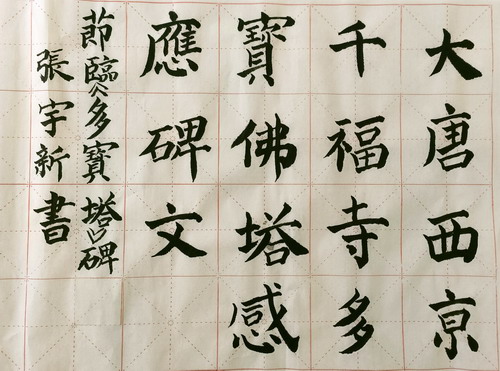 大唐西京
千福寺多
寳佛塔感
應碑文
莭臨多寳塔碑
張宇新書